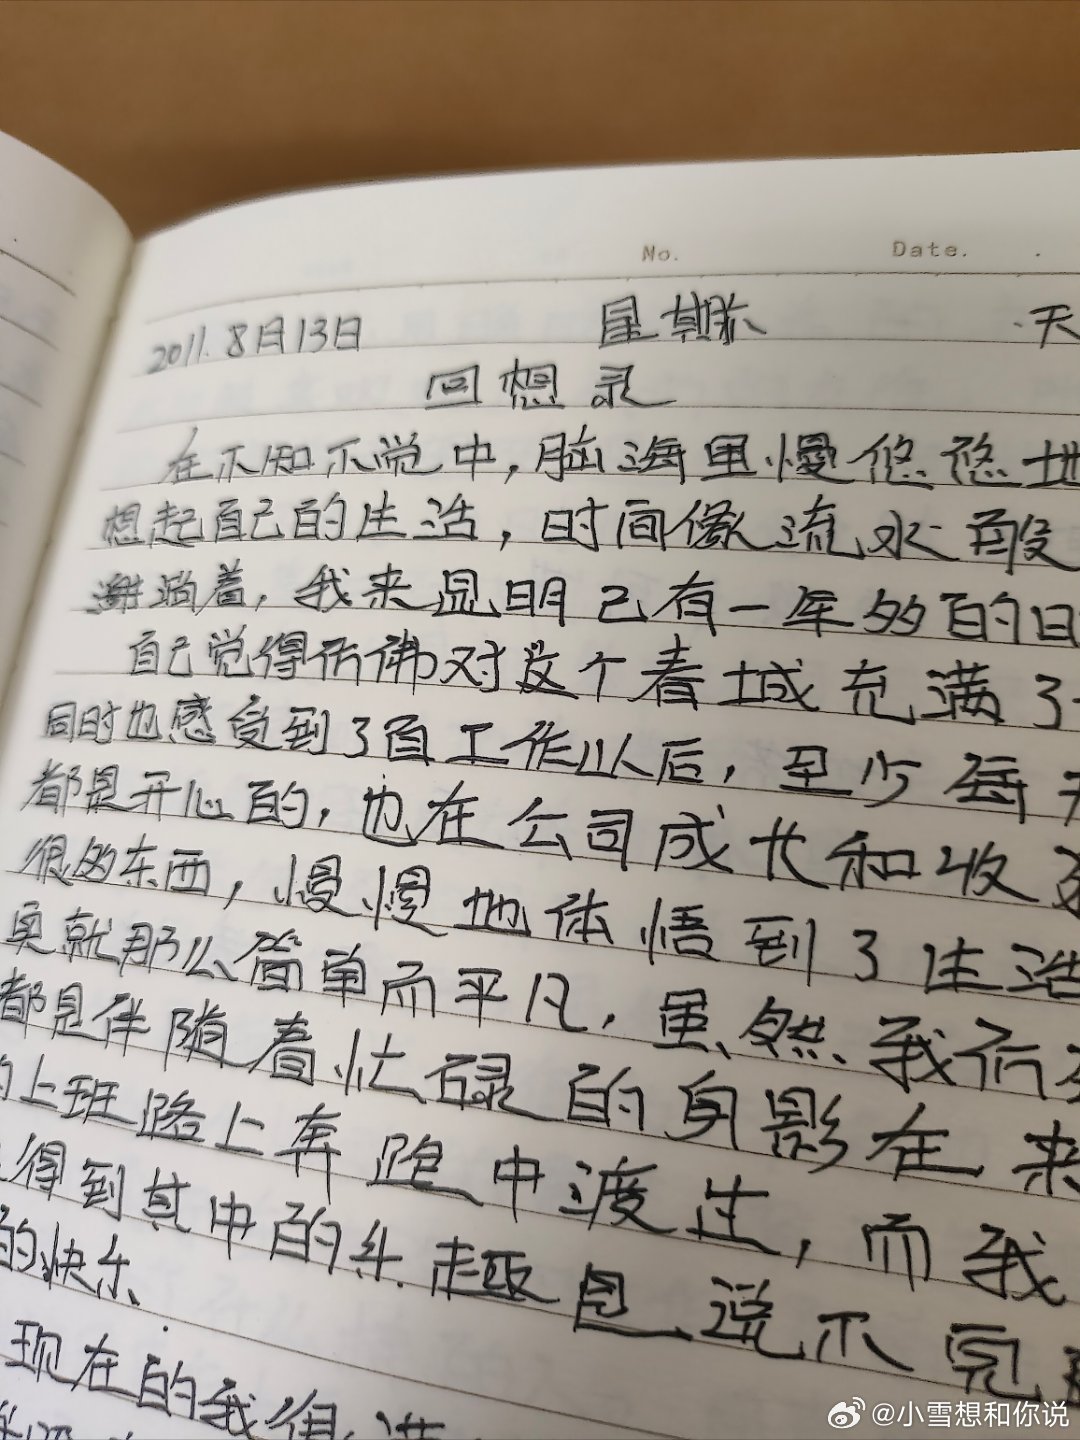 No. Date.
2011.8月13日 星期六 天
回想录
在不知不觉中，脑海里慢悠悠地
想起自己的生活，时间像流水般
淌着，我来昆明已有一年多的日
自己觉得仿佛对这个春城充满了
同时也感受到了自工作以后，至少每天
都是开心的，也在公司成长和收获
很多东西，慢慢地体悟到了生活
实就那么简单而平凡，虽然我每天
都是伴随着忙碌的身影在来
的上班路上奔跑中渡过，而我
得到其中的乐趣是说不完
的快乐
现在的我很满
@小雪想和你说